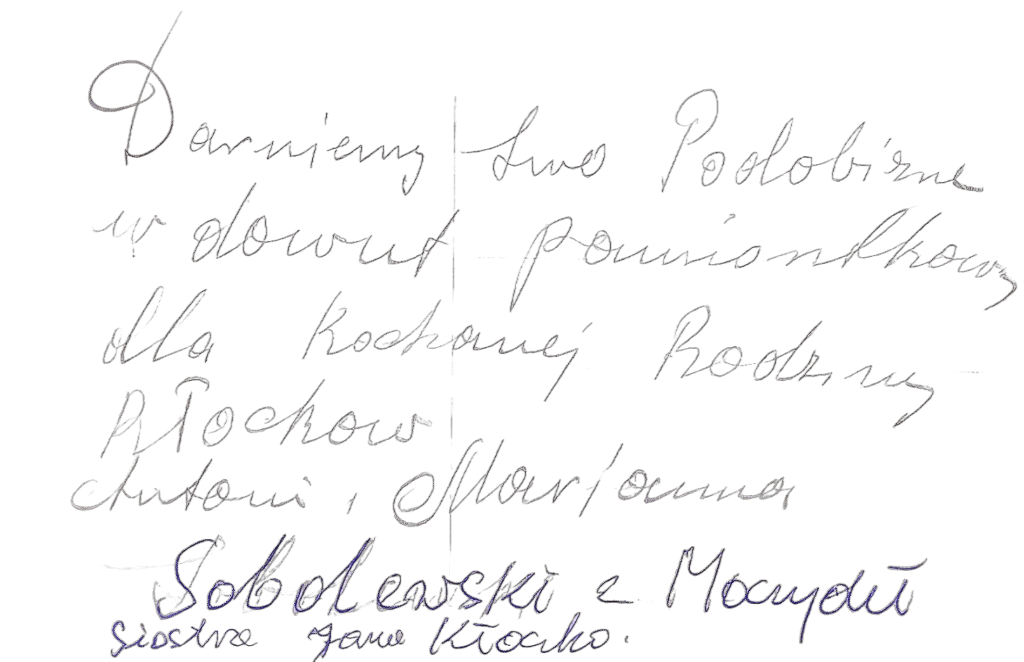 Darujemy swo Podobizne
w dowut pamiontkowy
dla Kochanej Rodziny
Kłockow
Antoni i Marjanna
Sobolewski z Moczydił
Siostra Jana Kłocko.